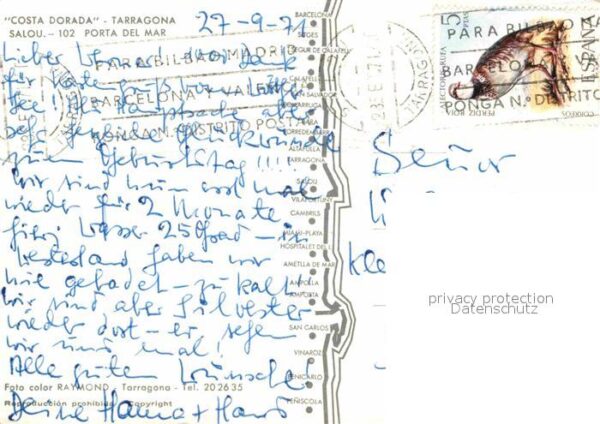 "COSTA DORADA" - TARRAGONA
SALOU. - 102 PORTA DEL MAR
27-9-71
Lieber
für
See!!! Die Hauptsache aber
sehr gesunde Glückwünsche
zum Geburtstag!!!!
Wir sind nun erst mal
wieder für 2 Monate
hier, Wasser 25 Grad - in
Westerland haben wir
nie gebadet - zu kalt!
Wir sind aber Silvester
wieder dort - er, sehen
wir uns mal!
Alle guten Wünsche
Deine Hanna + Hans
Foto color RAYMOND - Tarragona - Tel. 202635
Reproducción prohibida Copyright
PARA BILBAO MADRID
BARCELONA VALENCIA
PONGA N.º DISTRITO POSTAL
BARCELONA
SITGES
CALAFELL
SAN SALVADOR
TORREDEMBARRA
ALTAFULLA
TARRAGONA
SALOU
VILAFORTUNY
CAMBRILS
MIAMI-PLAYA
HOSPITALET DEL I.
AMETLLA DE MAR
AMPOLLA
AMPOSTA
SAN CARLOS
VINAROZ
BENICARLO
PEÑISCOLA
PARA BILBAO
BARCELONA
PONGA N.º DISTRITO
TARRAGONA
5
PTAS
ALECTORIS RUFA
PERDIZ ROJA
CORREOS
ESPAÑA
Señor
Kle
privacy protection
Datenschutz